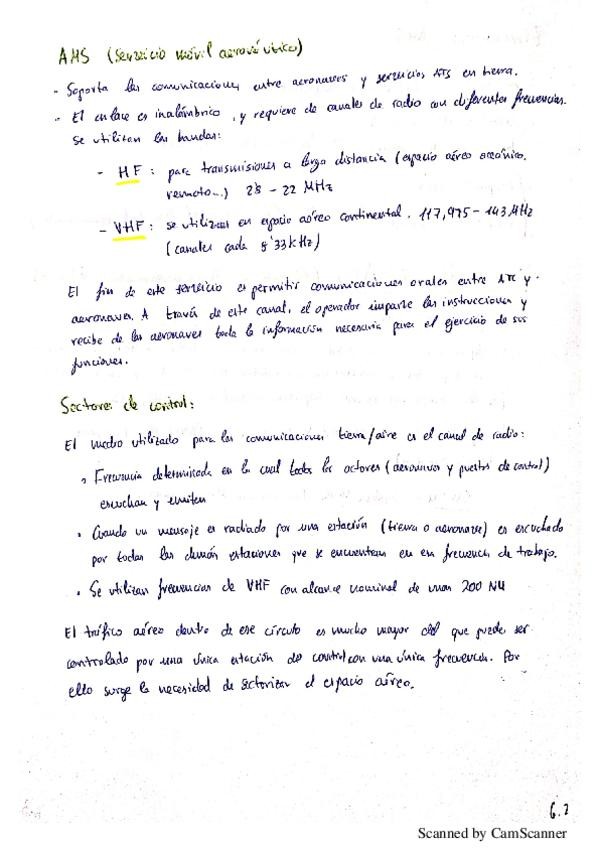 AMS (Servicio móvil aeronáutico)
- Soporta las comunicaciones entre aeronaves y servicios ATS en tierra.
- El enlace es inalámbrico, y requiere de canales de radio con diferentes frecuencias.
Se utilizan las bandas:
- HF: para transmisiones a larga distancia (espacio aéreo oceánico,
remoto...) 2'8 - 22 MHz
- VHF: se utilizan en espacio aéreo continental. 117,975 - 143 MHz
(canales cada 8'33 kHz)
El fin de este servicio es permitir comunicaciones orales entre ATC y
aeronaves. A través de este canal, el operador imparte las instrucciones y
recibe de las aeronaves toda la información necesaria para el ejercicio de sus
funciones.
Sectores de control:
El medio utilizado para las comunicaciones tierra/aire es el canal de radio:
• Frecuencia determinada en la cual todos los actores (aeronaves y puestos de control)
escuchan y emiten
• Cuando un mensaje es radiado por una estación (tierra o aeronave) es escuchado
por todas las demás estaciones que se encuentran en en frecuencia de trabajo.
• Se utilizan frecuencias de VHF con alcance nominal de unas 200 NM
El tráfico aéreo dentro de ese círculo es mucho mayor del que puede ser
controlado por una única estación de control con una única frecuencia. Por
ello surge la necesidad de sectorizar el espacio aéreo.
6.2
Scanned by CamScanner